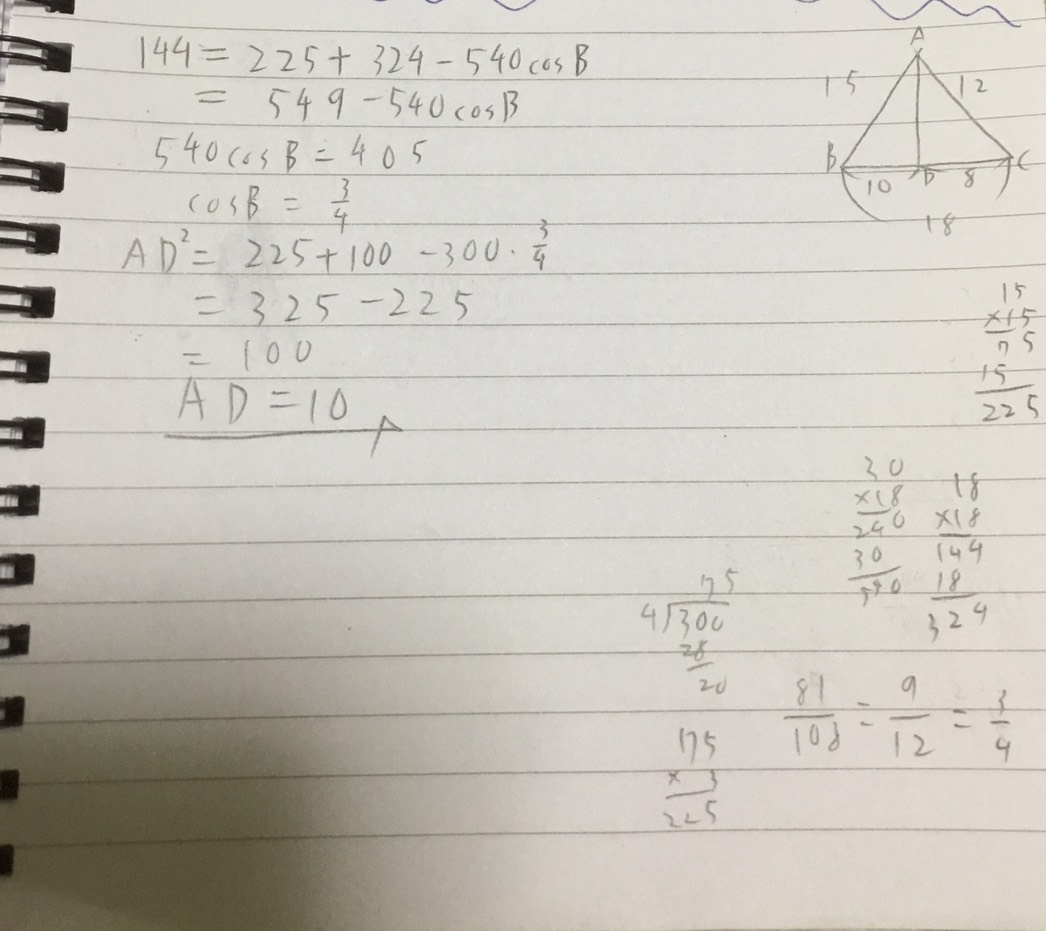 144 = 225 + 324 - 540 cos B
= 549 - 540 cos B
540 cos B = 405
cos B = 3/4
AD² = 225 + 100 - 300 · 3/4
= 325 - 225
= 100
AD = 10
A
15
12
B
10
D
8
C
18
15
×15
75
15
225
30
×18
240
30
540
18
×18
144
18
324
75
4)300
28
20
81/108 = 9/12 = 3/4
175
× 3
225